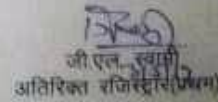 जी.एल. स्वामी
अतिरिक्त रजिस्ट्रार(प्रथम)